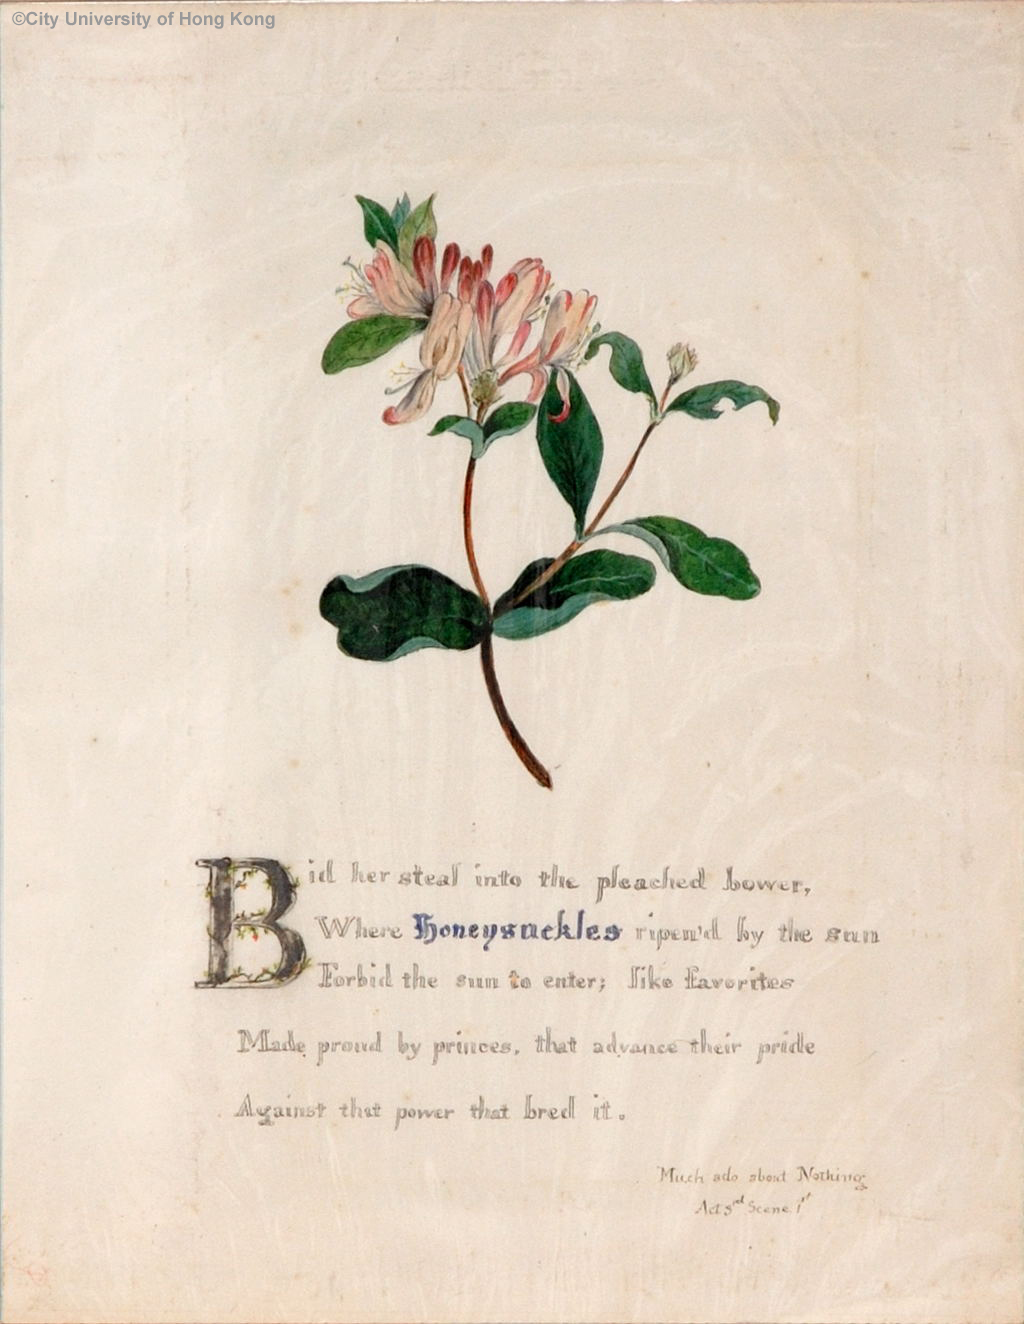 ©City University of Hong Kong
Bid her steal into the pleached bower,
Where Honeysuckles ripen'd by the sun
Forbid the sun to enter; like favorites
Made proud by princes, that advance their pride
Against that power that bred it.
Much ado about Nothing
Act 3rd Scene 1st